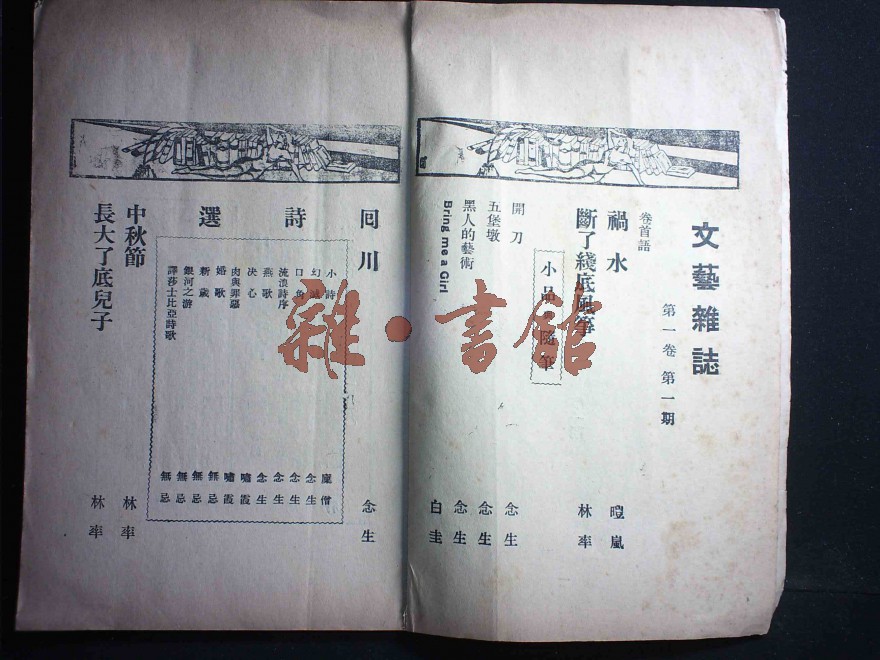 文藝雜誌
第一卷 第一期
卷首語
禍水 暟嵐
斷了綫底風箏 林率
小品 隨筆
開刀 念生
五堡墩 念生
黑人的藝術 念生
Bring me a Girl 白圭
囘川 念生
詩選
小詩 龐僧
幻滅 念生
口角 念生
流浪詩序 念生
燕歌 念生
決心 嘯霞
肉與罪惡 嘯霞
婚歌 無忌
新歲 無忌
銀河之游 無忌
譯莎士比亞詩歌 無忌
中秋節 林率
長大了底兒子 林率
雜·書館